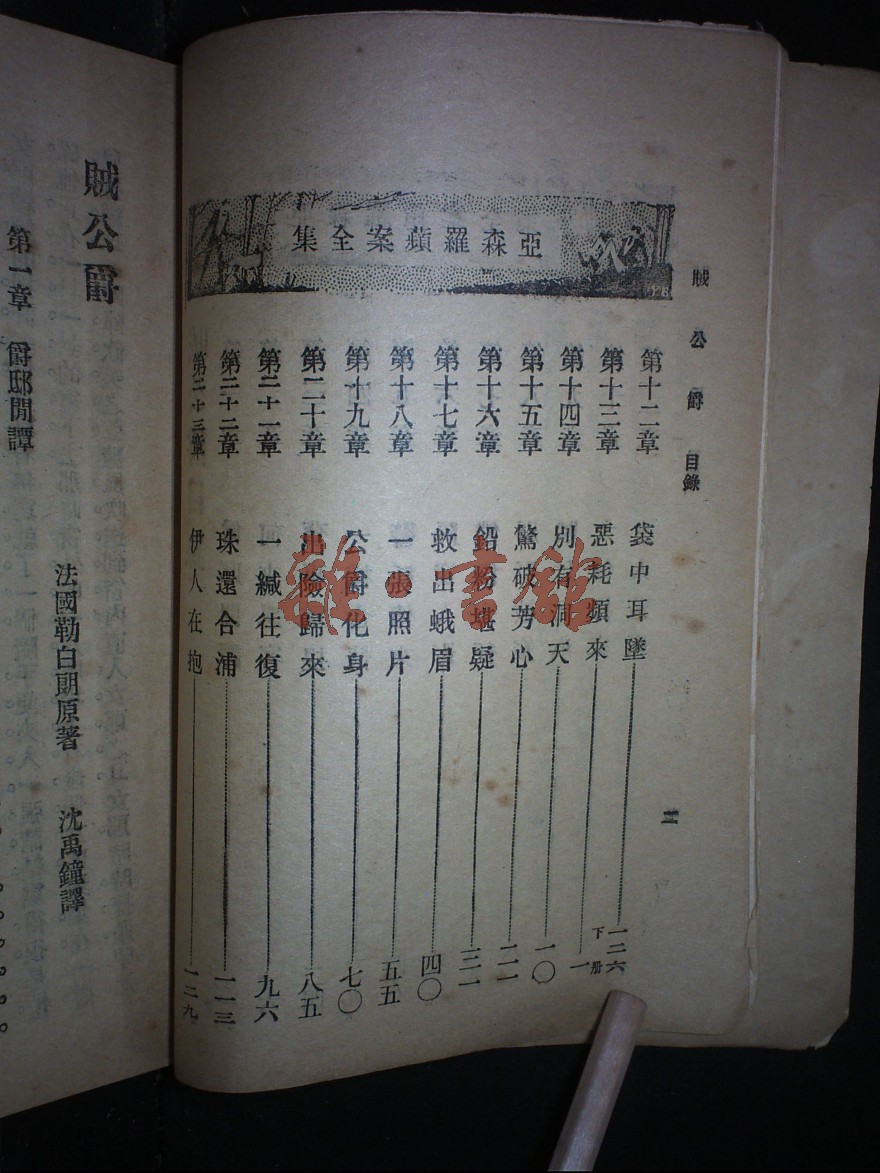 亞森羅蘋案全集
賊公爵 目錄
二
第十二章 袋中耳墜 一二六
第十三章 惡耗頻來 下册 一
第十四章 別有洞天 一〇
第十五章 驚破芳心 二一
第十六章 鉛粉堪疑 三一
第十七章 救出蛾眉 四〇
第十八章 一張照片 五五
第十九章 公爵化身 七〇
第二十章 出險歸來 八五
第二十一章 一緘往復 九六
第二十二章 珠還合浦 一一三
第二十三章 伊人在抱 一二九
賊公爵
法國勒白朗原著 沈禹鐘譯
第一章 爵邸閒譚
雜·書館